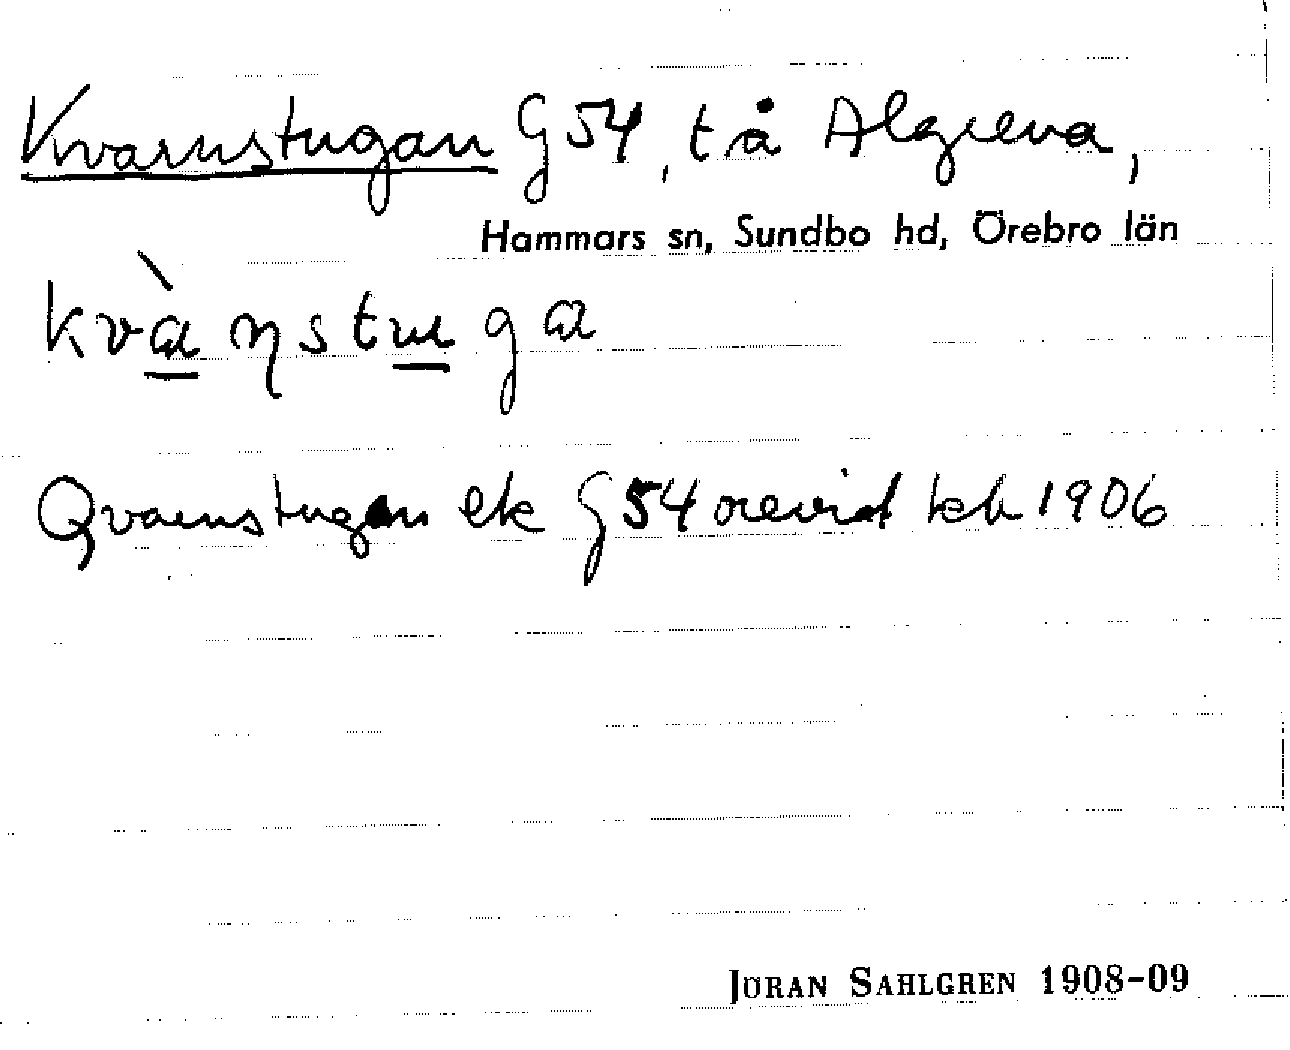 Kvarnstugan G 54, t å Algreva,
Hammars sn, Sundbo hd, Örebro län
kvàṇstuga
Qvarnstugan ek G 54 orevid kb 1906
JÖRAN SAHLGREN 1908-09